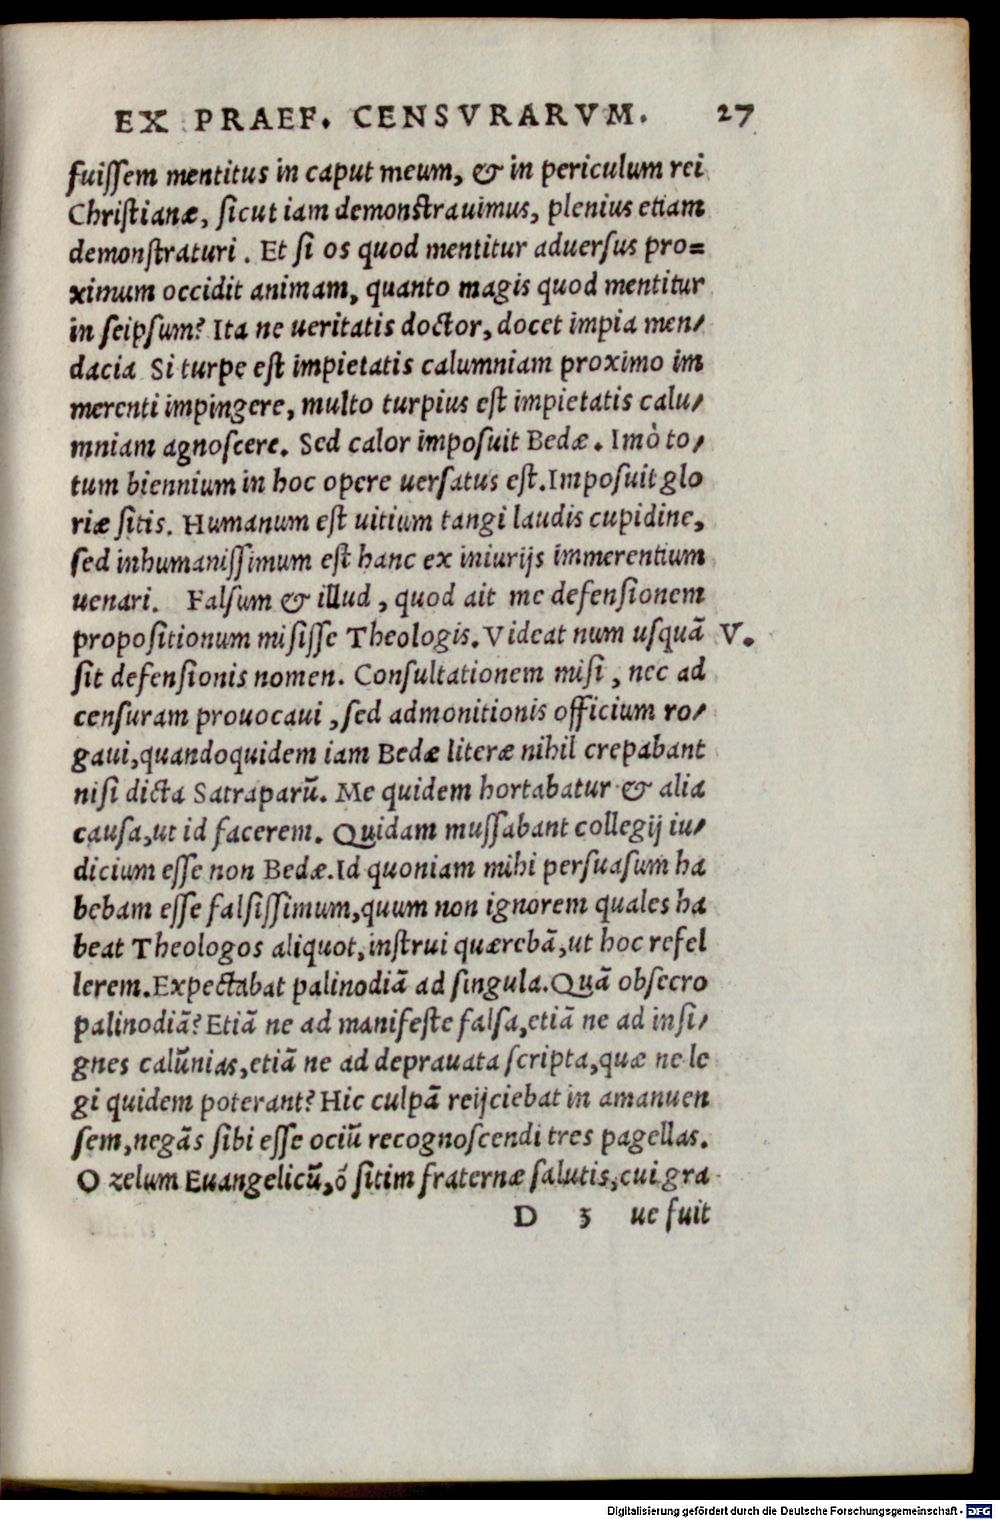 EX PRAEF. CENSVRARVM. 27
fuissem mentitus in caput meum, & in periculum rei
Christianæ, sicut iam demonstrauimus, plenius etiam
demonstraturi. Et si os quod mentitur aduersus pro=
ximum occidit animam, quanto magis quod mentitur
in seipsum? Ita ne ueritatis doctor, docet impia men/
dacia Si turpe est impietatis calumniam proximo im
merenti impingere, multo turpius est impietatis calu/
mniam agnoscere. Sed calor imposuit Bedæ. Imò to/
tum biennium in hoc opere uersatus est. Imposuit glo
riæ sitis. Humanum est uitium tangi laudis cupidine,
sed inhumanissimum est hanc ex iniurijs immerentium
uenari. Falsum & illud, quod ait me defensionem
propositionum misisse Theologis. Videat num usquã V.
sit defensionis nomen. Consultationem misi, nec ad
censuram prouocaui, sed admonitionis officium ro/
gaui, quandoquidem iam Bedæ literæ nihil crepabant
nisi dicta Satraparũ. Me quidem hortabatur & alia
causa, ut id facerem. Quidam mussabant collegij iu/
dicium esse non Bedæ. Id quoniam mihi persuasum ha
bebam esse falsissimum, quum non ignorem quales ha
beat Theologos aliquot, instrui quærebã, ut hoc refel
lerem. Expectabat palinodiã ad singula. Quã obsecro
palinodiã? Etiã ne ad manifeste falsa, etiã ne ad insi/
gnes calũnias, etiã ne ad deprauata scripta, quæ ne le
gi quidem poterant? Hic culpã reijciebat in amanuen
sem, negãs sibi esse ociũ recognoscendi tres pagellas.
O zelum Euangelicũ, ó sitim fraternæ salutis, cui gra
D 3 ue fuit
Digitalisierung gefördert durch die Deutsche Forschungsgemeinschaft - DFG